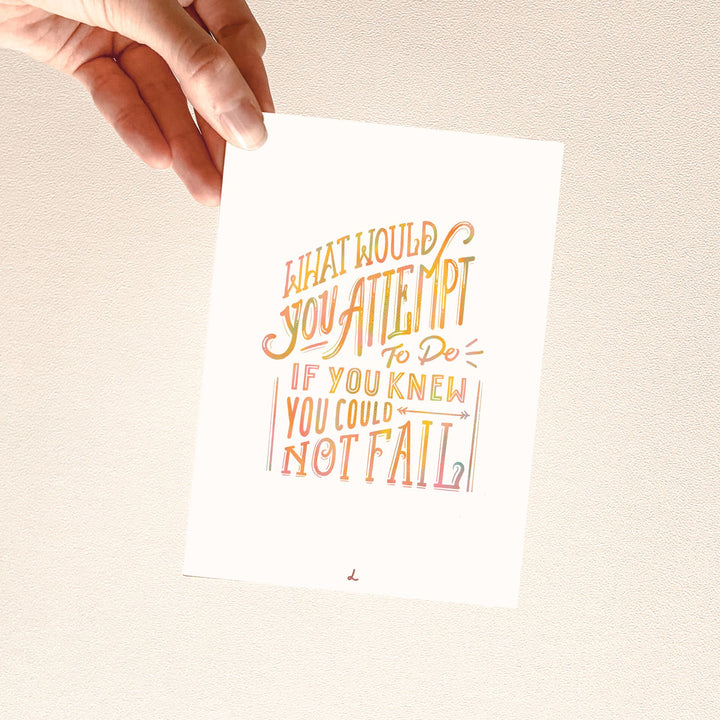 WHAT WOULD
YOU ATTEMPT
To Do
IF YOU KNEW
YOU COULD
NOT FAIL